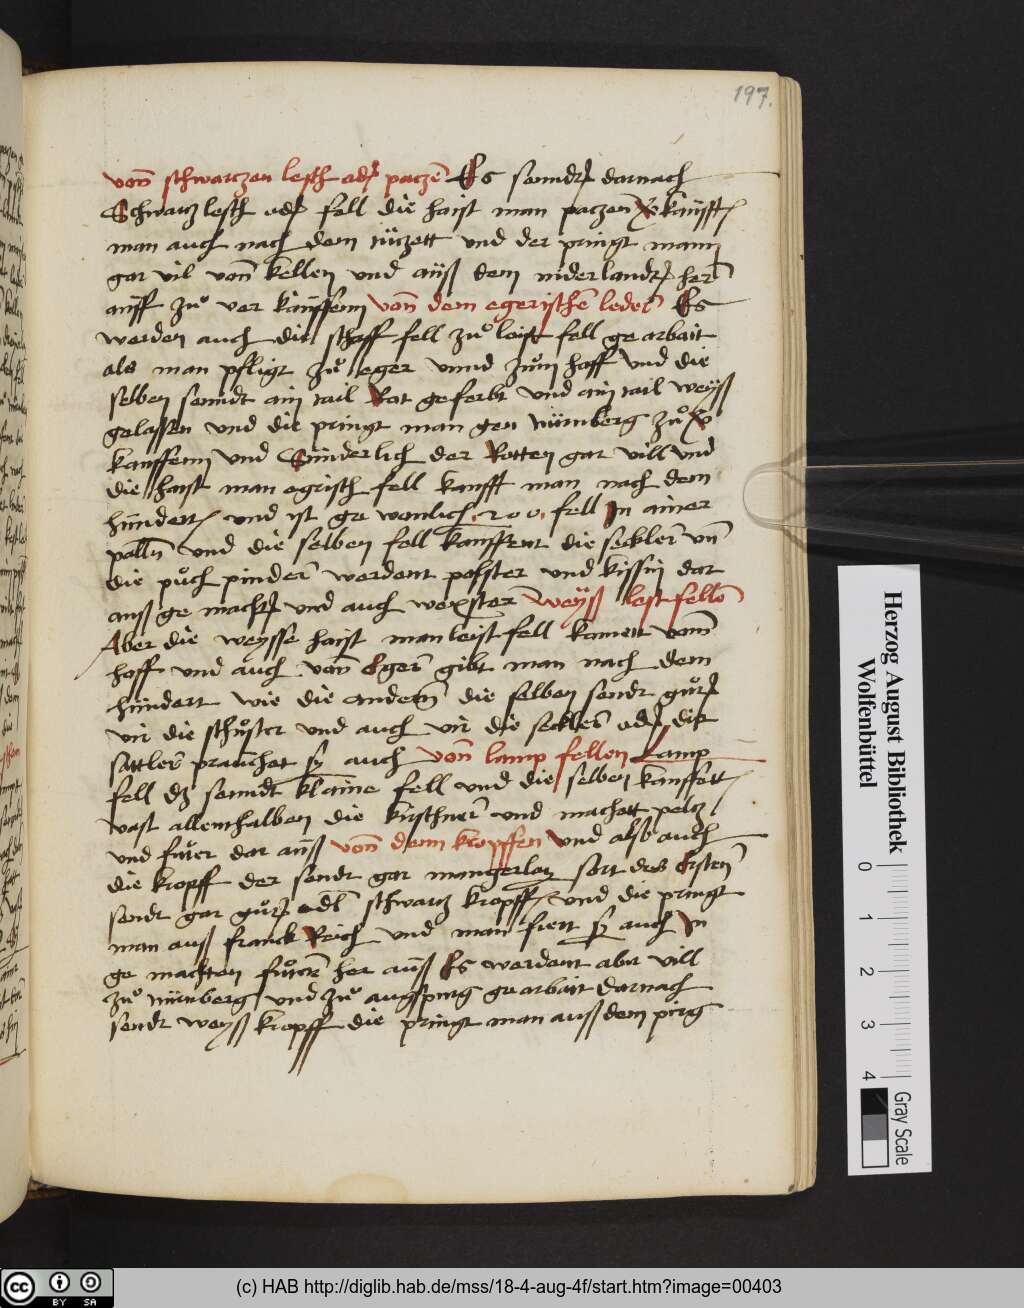 197.
vonn schwarczen lesch oder paczen Es sennder darnach
Schwarcz lesch oder fell die haist man paczen verkaufft
man auch nach dem und der pringt mann
gar vil vonn kellen und auß dem niderlandt her
auff zu ver kauffenn vonn dem egerischen leder Es
werden auch die schaff fell zu leist fell ge arbait
als man pfligt zu eger unnd zum hoff und die
selben senndt ain tail Rot geferbt und ain tail weyß
gelassen und die pringt man gen nurnberg zu ver
kauffenn und Sunderlich der Rotten gar vill und
die haist man egrisch fell kaufft man nach dem
hundertt und ist ge wonlich .200. fell In ainer
palln und die selben fell kauffent die seckler und
die puch pinder werdent polster und kissin dar
auß ge macht und auch weyß lest fellen
Aber die weysse haist man leist fell komen vonn
hoff und auch vonn Eger gibt man nach dem
hundert wie die andern die selben sendt gut
vir die schuster und auch vir die seckler oder die
sattler prauchet sy auch vonn lamp fellen Lamp
fell das senndt klaine fell und die selben kauffett
vast allenthalben die kirschner und machett pelcz
und futer dar auß vonn denn kropffen und also auch
die kropff der sendt gar mangerlay sort des Ersten
sendt gar gut edl schwarcz kropff und die pringt
man auß franck Reich und man fiert sy auch In
ge machten futern her auß Es werdent aber vill
zu nurnberg und zu augspurg ge arbait Darnach
sendt weyß kropff die pringt man auß dem pirg
Herzog August Bibliothek
Wolfenbüttel
0 1 2 3 4
Gray Scale
cc BY SA
(c) HAB http://diglib.hab.de/mss/18-4-aug-4f/start.htm?image=00403